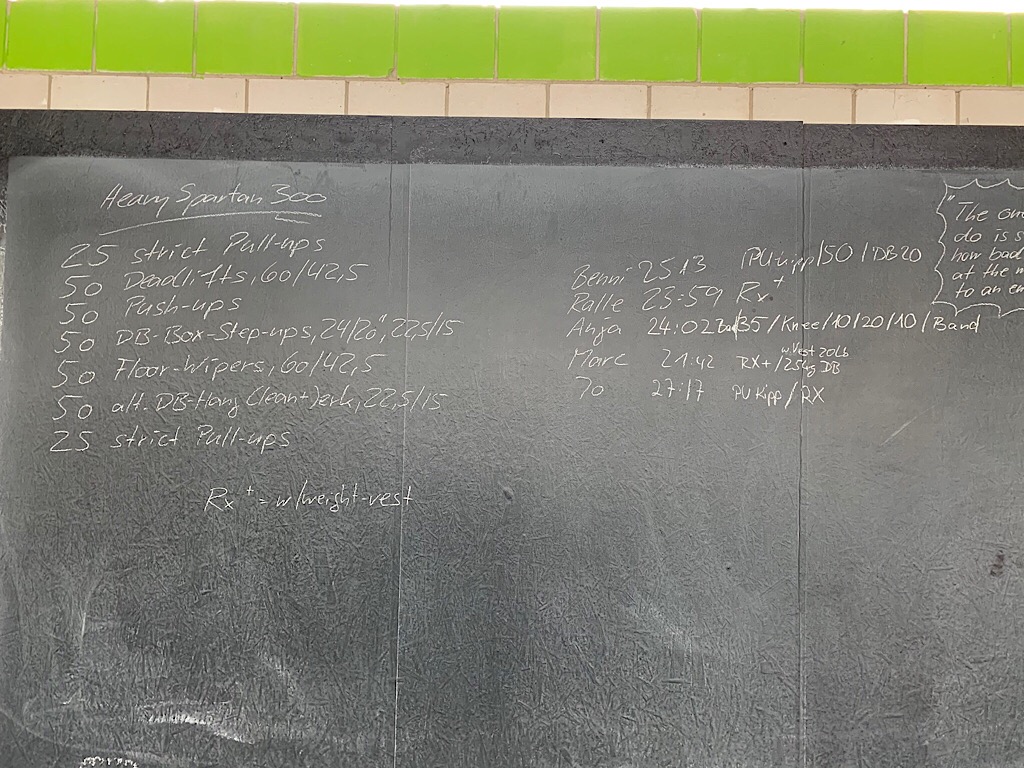 Heavy Spartan 300
25 strict Pull-ups
50 Deadlifts, 60/42,5
50 Push-ups
50 DB-Box-Step-ups, 24/20", 22,5/15
50 Floor-Wipers, 60/42,5
50 alt. DB-Hang Clean+Jerk, 22,5/15
25 strict Pull-ups
Rx+ = w/weight-vest
Benni 25 13 PU kipp/50/DB20
Ralle 23:59 Rx+
Anja 24:02 /35/Knee/10/20/10/Band
Marc 21:42 RX+ / w.Vest 20Lb DB
Jo 27:17 PU kipp/RX
"The
do is
how bad
at the
to an